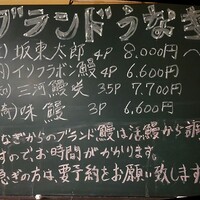 ブランドうなぎ
坂東太郎 4P 8.000円
イソフラボン鰻 4P 6.600円
三河鰻咲 3.5P 7.700円
味鰻 3P 6.600円
なぎからのブランド鰻は活鰻から調
すのでお時間がかかります。
急ぎの方は、要予約をお願い致します